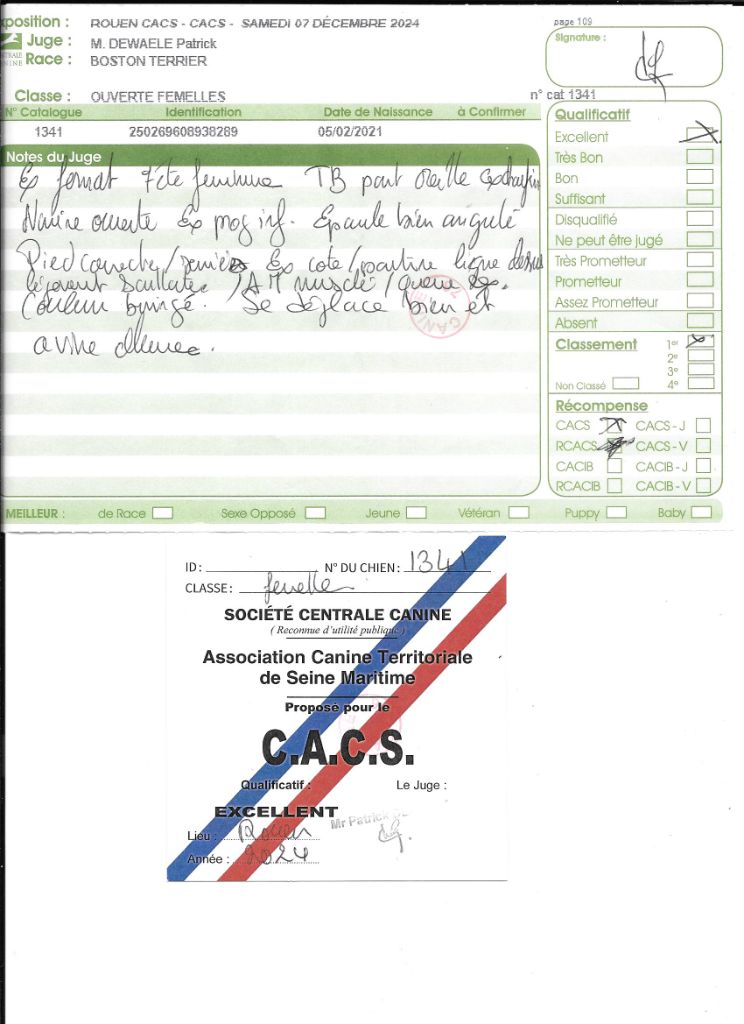 xposition : ROUEN CACS - CACS - SAMEDI 07 DÉCEMBRE 2024
page 109
Juge : M. DEWAELE Patrick
Signature :
Race : BOSTON TERRIER
Classe : OUVERTE FEMELLES
n° cat 1341
N° Catalogue Identification Date de Naissance à Confirmer
1341 250269608938289 05/02/2021
Qualificatif
Excellent
Très Bon
Bon
Suffisant
Disqualifié
Ne peut être jugé
Très Prometteur
Prometteur
Assez Prometteur
Absent
Classement 1er
2e
3e
Non Classé 4e
Récompense
CACS CACS - J
RCACS CACS - V
CACIB CACIB - J
RCACIB CACIB - V
Notes du Juge
Ex format Tête feminine TB port oreille
Narine ouverte Ex prog inf. Epaule bien angulé
Pied correcte / Ex cote / poitrine ligne dessus
AM musclé /
Couleur bringé. Se déplace bien et
MEILLEUR : de Race Sexe Opposé Jeune Vétéran Puppy Baby
ID : N° DU CHIEN : 1341
CLASSE : femelle
SOCIÉTÉ CENTRALE CANINE
( Reconnue d'utilité publique )
Association Canine Territoriale
de Seine Maritime
Proposé pour le
C.A.C.S.
Qualificatif : Le Juge :
EXCELLENT
Mr Patrick
Lieu : Rouen
Année : 2024